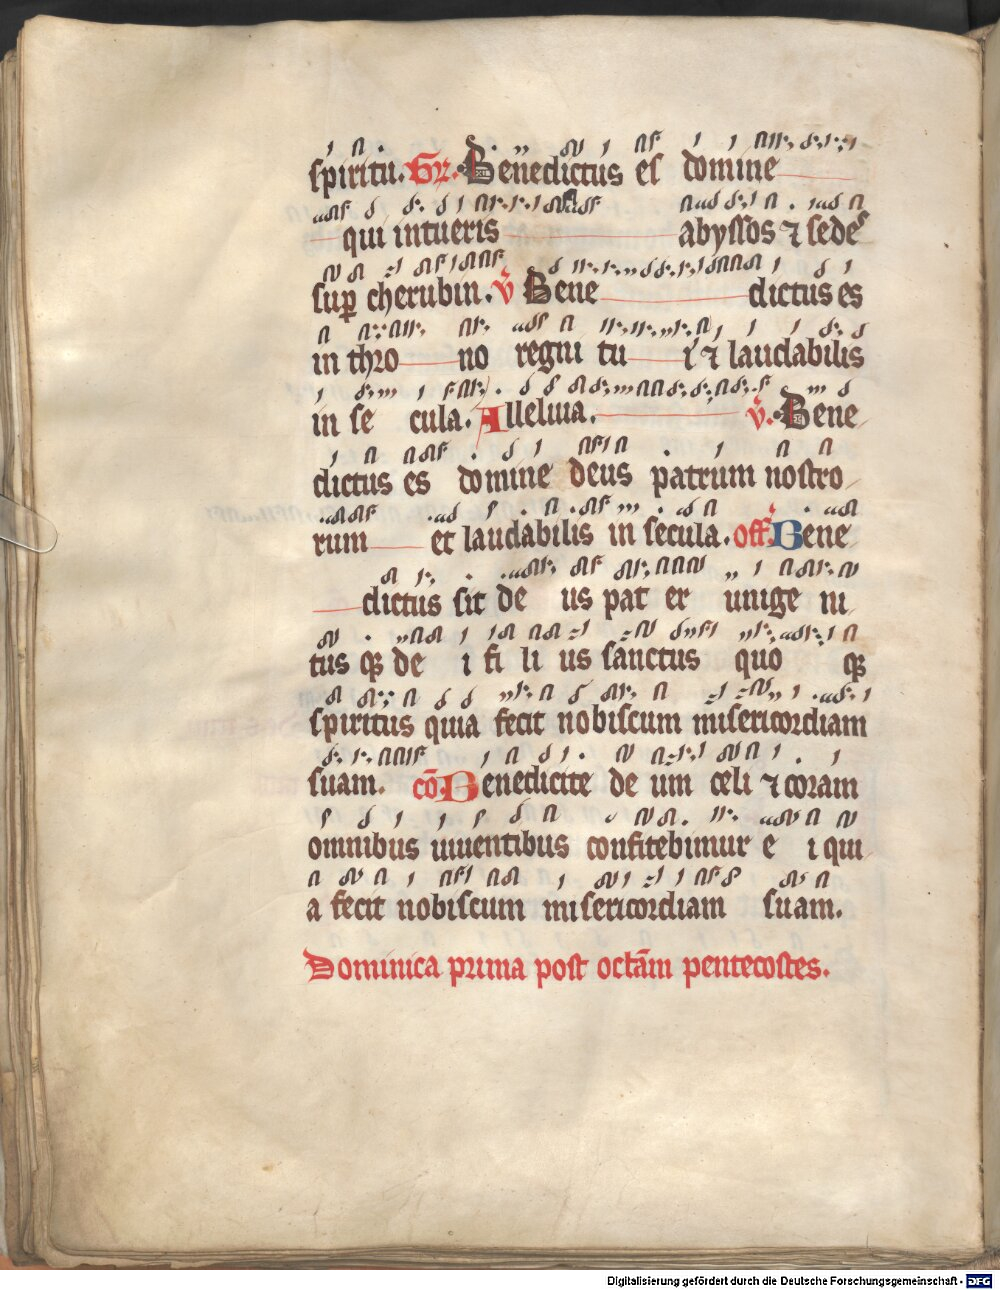 spiritu. Gr. Benedictus es domine
qui intueris abyssos ⁊ sedes
sup cherubin. v̄ Bene dictus es
in thro no regni tu i ⁊ laudabilis
in se cula. Alleluia. v̄. Bene
dictus es domine deus patrum nostro
rum et laudabilis in secula. off. Bene
dictus sit de us pat er unige ni
tus qꝫ de i fi li us sanctus quo qꝫ
spiritus quia fecit nobiscum misericordiam
suam. cō. Benedicite de um celi ⁊ coram
omnibus uiuentibus confitebimur e i qui
a fecit nobiscum misericordiam suam.
Dominica prima post octām pentecostes.
Digitalisierung gefördert durch die Deutsche Forschungsgemeinschaft - DFG